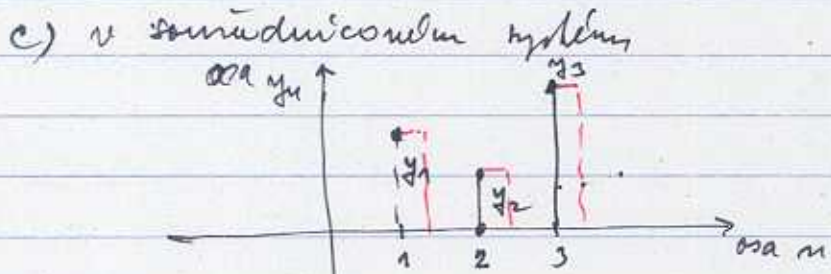 c) v souřadnicovém systému
osa yn
y3
y1
y2
1 2 3
osa n